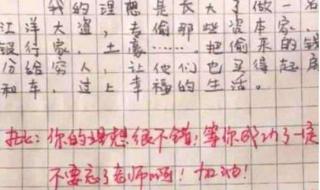 我的理想是长大了做一名
江洋大盗,专偷那些资本家、
银行家、土豪……把偷来的钱
分给穷人,让他们也买得起房
和车,过上幸福的生活。
批:你的理想很不错,等你成功了一定
不要忘了老师啊!加油!